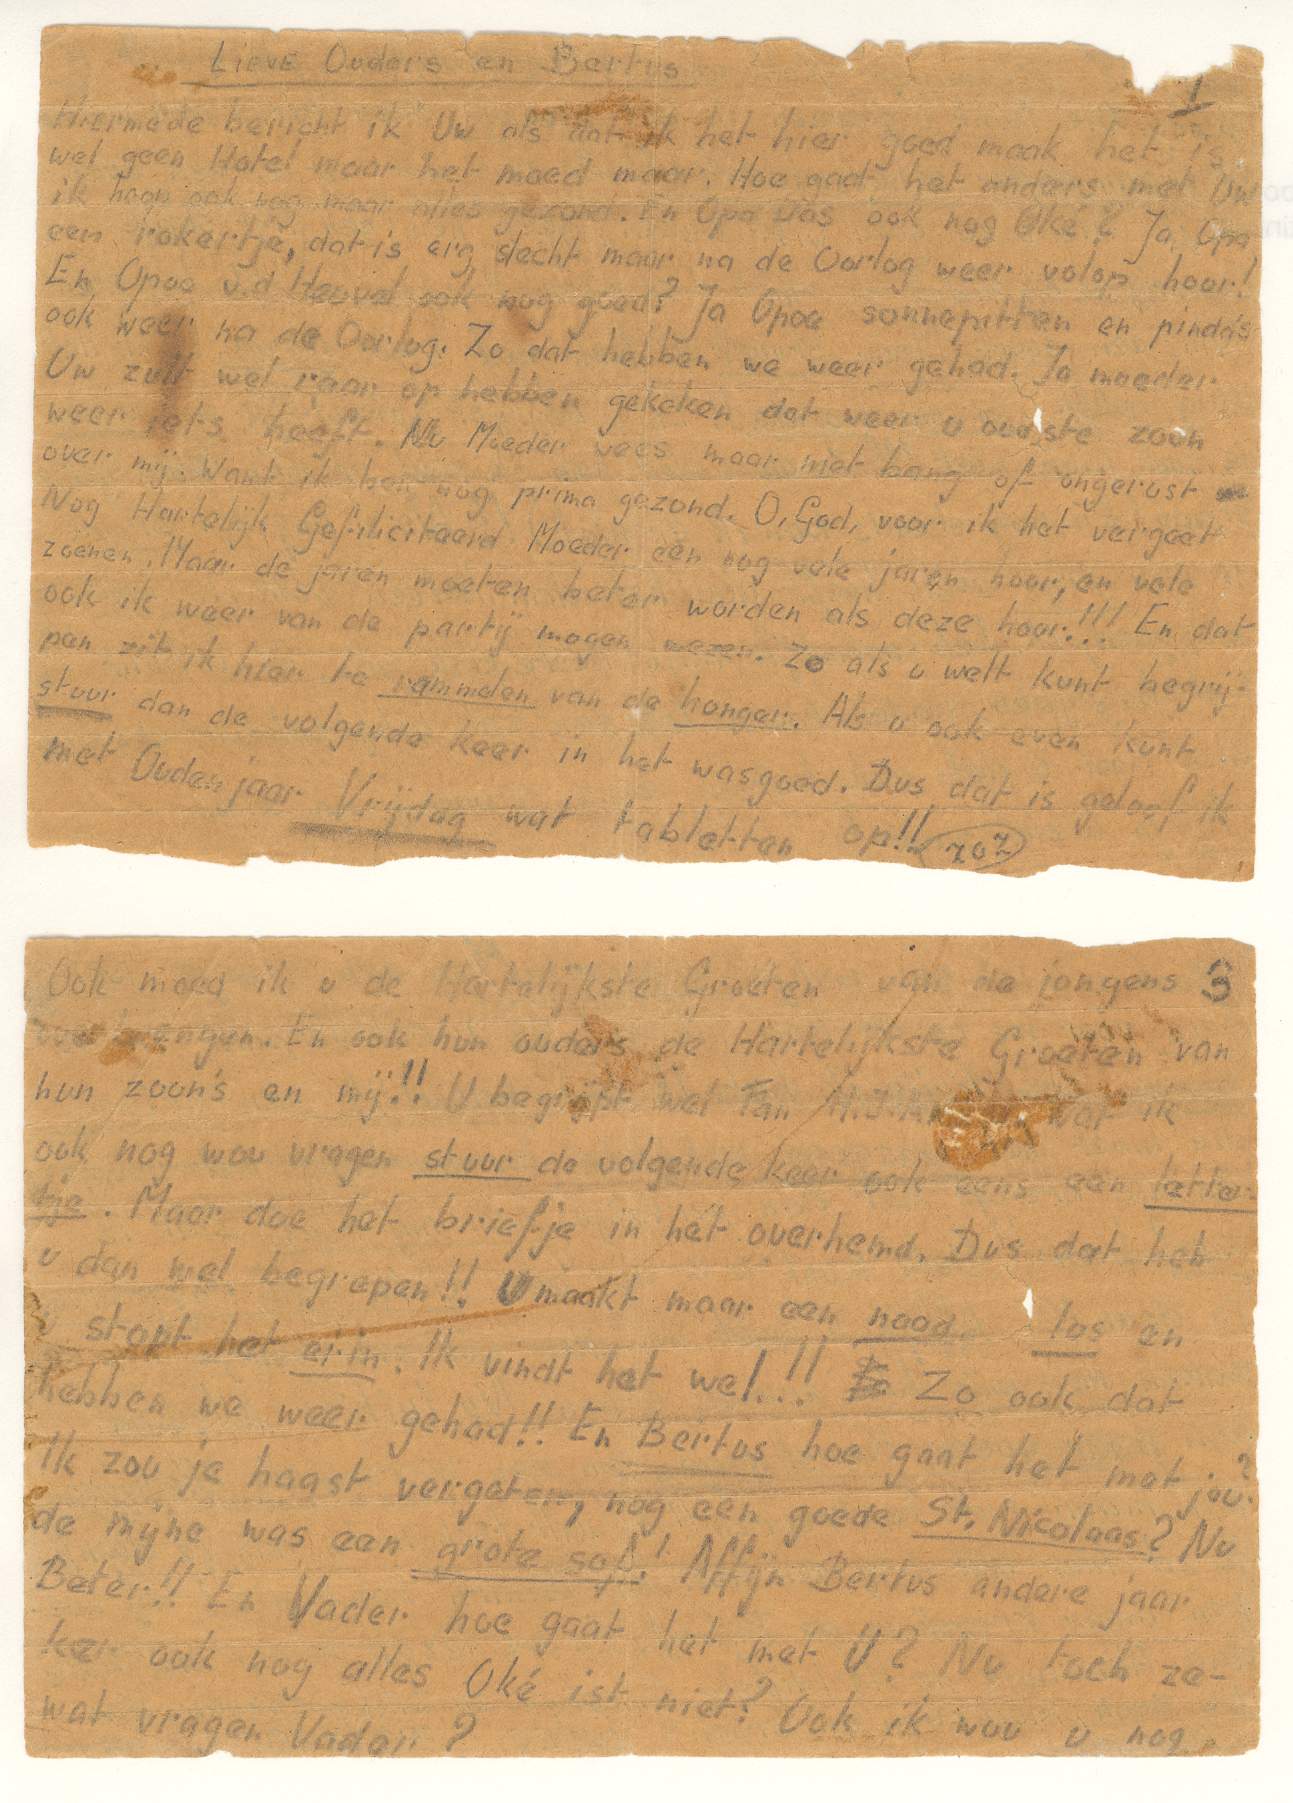 Lieve Ouders en Bertus
1
Hiermede bericht ik Uw als dat ik het hier goed maak het is
wel geen Hotel maar het moed maar. Hoe gaat het anders met Uw
ik hoop ook nog maar alles gezond. En Opa Das ook nog Oké? Ja Opa
een rokertje, dat is erg slecht maar na de Oorlog weer volop hoor!
En Opoe v.d Heuvel ook nog goed? Ja Opoe sonnepitten en pinda's
ook weer na de Oorlog. Zo dat hebben we weer gehad. Ja moeder
Uw zult wel raar op hebben gekeken dat weer u oudste zoon
weer iets heeft. Nu Moeder wees maar niet bang of ongerust
over mij. Want ik ben nog prima gezond. O, God, voor ik het vergeet
Nog Hartelijk Gefiliciteerd Moeder een nog vele jaren hoor, en vele
zoenen. Maar de jaren moeten beter worden als deze hoor!!! En dat
ook ik weer van de partij mogen wezen. Zo als u welt kunt begrij-
pen zit ik hier te rammelen van de honger. Als u ook even kunt
stuur dan de volgende keer in het wasgoed. Dus dat is geloof ik
met Oudenjaar Vrijdag wat tabletten op!! zoz
Ook moed ik u de Hartelijkste Groeten van de jongens 3
overbrengen. En ook hun ouders de Hartelijkste Groeten van
hun zoon's en mij!! U begrijpt wel Fam wat ik
ook nog wou vragen stuur de volgende keer ook eens een letter-
tje. Maar doe het briefje in het overhemd. Dus dat heb
u dan wel begrepen!! U maakt maar een naad los en
u stopt het er'in. Ik vindt het wel..!! Zo ook dat
hebben we weer gehad!! En Bertus hoe gaat het met jou?
Ik zou je haast vergeten, nog een goede St. Nicolaas? Nu
de mijne was een grote sof! Affijn Bertus andere jaar
Beter!! En Vader hoe gaat het met U? Nu toch ze-
ker ook nog alles Oké ist niet? Ook ik wou u nog
wat vragen Vader?